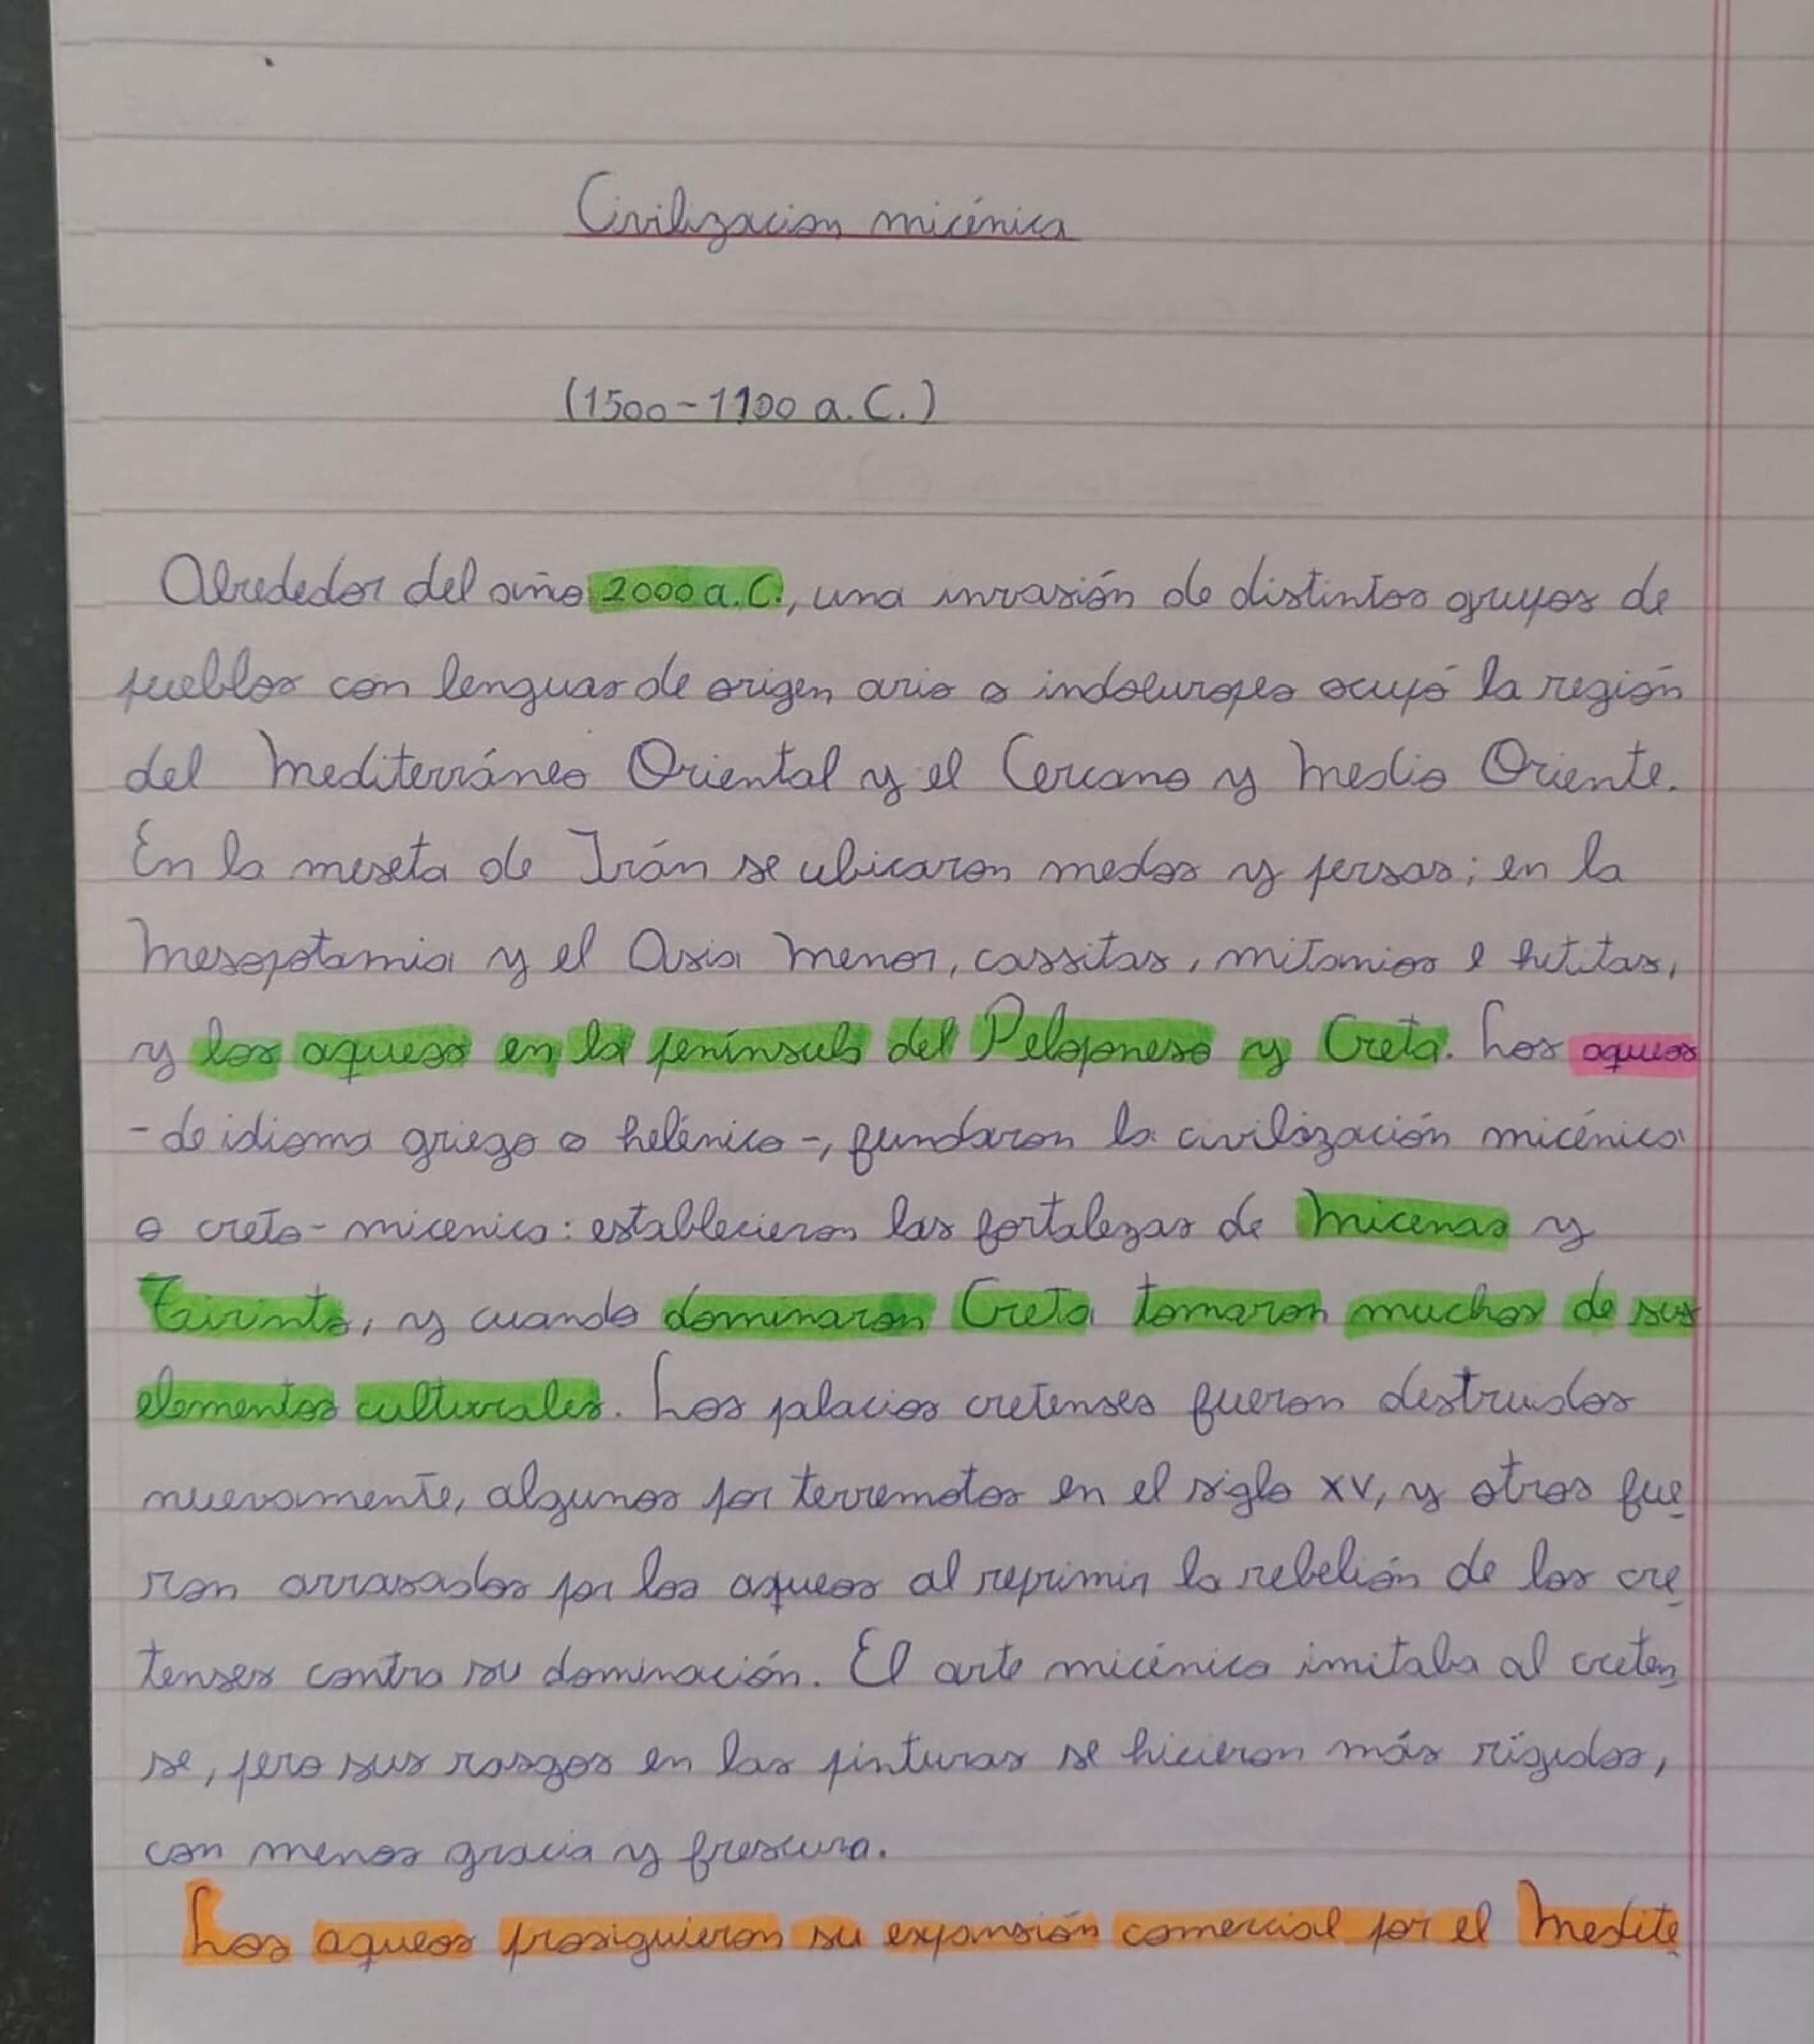 Civilizacion micénica
(1500-1100 a.C.)
Alrededor del año 2000 a.C., una invasión de distintos grupos de
pueblos con lenguas de origen ario o indoeuropeo ocupó la región
del Mediterráneo Oriental y el Cercano y Medio Oriente.
En la meseta de Irán se ubicaron medos y persas; en la
Mesopotamia y el Asia Menor, cassitas, mitanios e hititas,
y los aqueos en la península del Peloponeso y Creta. Los aqueos
-de idioma griego o helénico-, fundaron la civilización micénica
o creto-micenica: establecieron las fortalezas de Micenas y
Tirinto, y cuando dominaron Creta tomaron muchos de sus
elementos culturales. Los palacios cretenses fueron destruidos
nuevamente, algunos por terremotos en el siglo XV, y otros fue
ron arrasados por los aqueos al reprimir la rebelión de los cre
tenses contra su dominación. El arte micénico imitaba al creten
se, pero sus rasgos en las pinturas se hicieron más rígidos,
con menos gracia y frescura.
Los aqueos prosiguieron su expansión comercial por el Medite